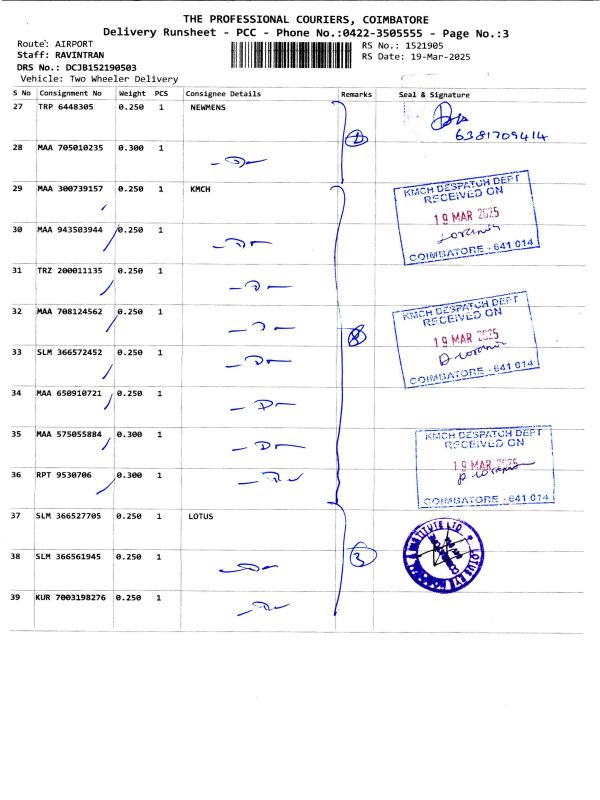 THE PROFESSIONAL COURIERS, COIMBATORE
Delivery Runsheet - PCC - Phone No.:0422-3505555 - Page No.:3
Route: AIRPORT
RS No.: 1521905
Staff: RAVINTRAN
RS Date: 19-Mar-2025
DRS No.: DCJB152190503
Vehicle: Two Wheeler Delivery
S No Consignment No Weight PCS Consignee Details Remarks Seal & Signature
27 TRP 6448305 0.250 1 NEWMENS
6381709414
28 MAA 705010235 0.300 1
29 MAA 300739157 0.250 1 KMCH
KMCH DESPATCH DEPT
RECEIVED ON
19 MAR 2025
COIMBATORE - 641 014
30 MAA 943503944 0.250 1
31 TRZ 200011135 0.250 1
32 MAA 708124562 0.250 1
KMCH DESPATCH DEPT
RECEIVED ON
19 MAR 2025
COIMBATORE - 641 014
33 SLM 366572452 0.250 1
34 MAA 650910721 0.250 1
35 MAA 575055884 0.300 1
KMCH DESPATCH DEPT
RECEIVED ON
19 MAR 2025
COIMBATORE - 641 014
36 RPT 9530706 0.300 1
37 SLM 366527705 0.250 1 LOTUS
38 SLM 366561945 0.250 1
3
39 KUR 7003198276 0.250 1